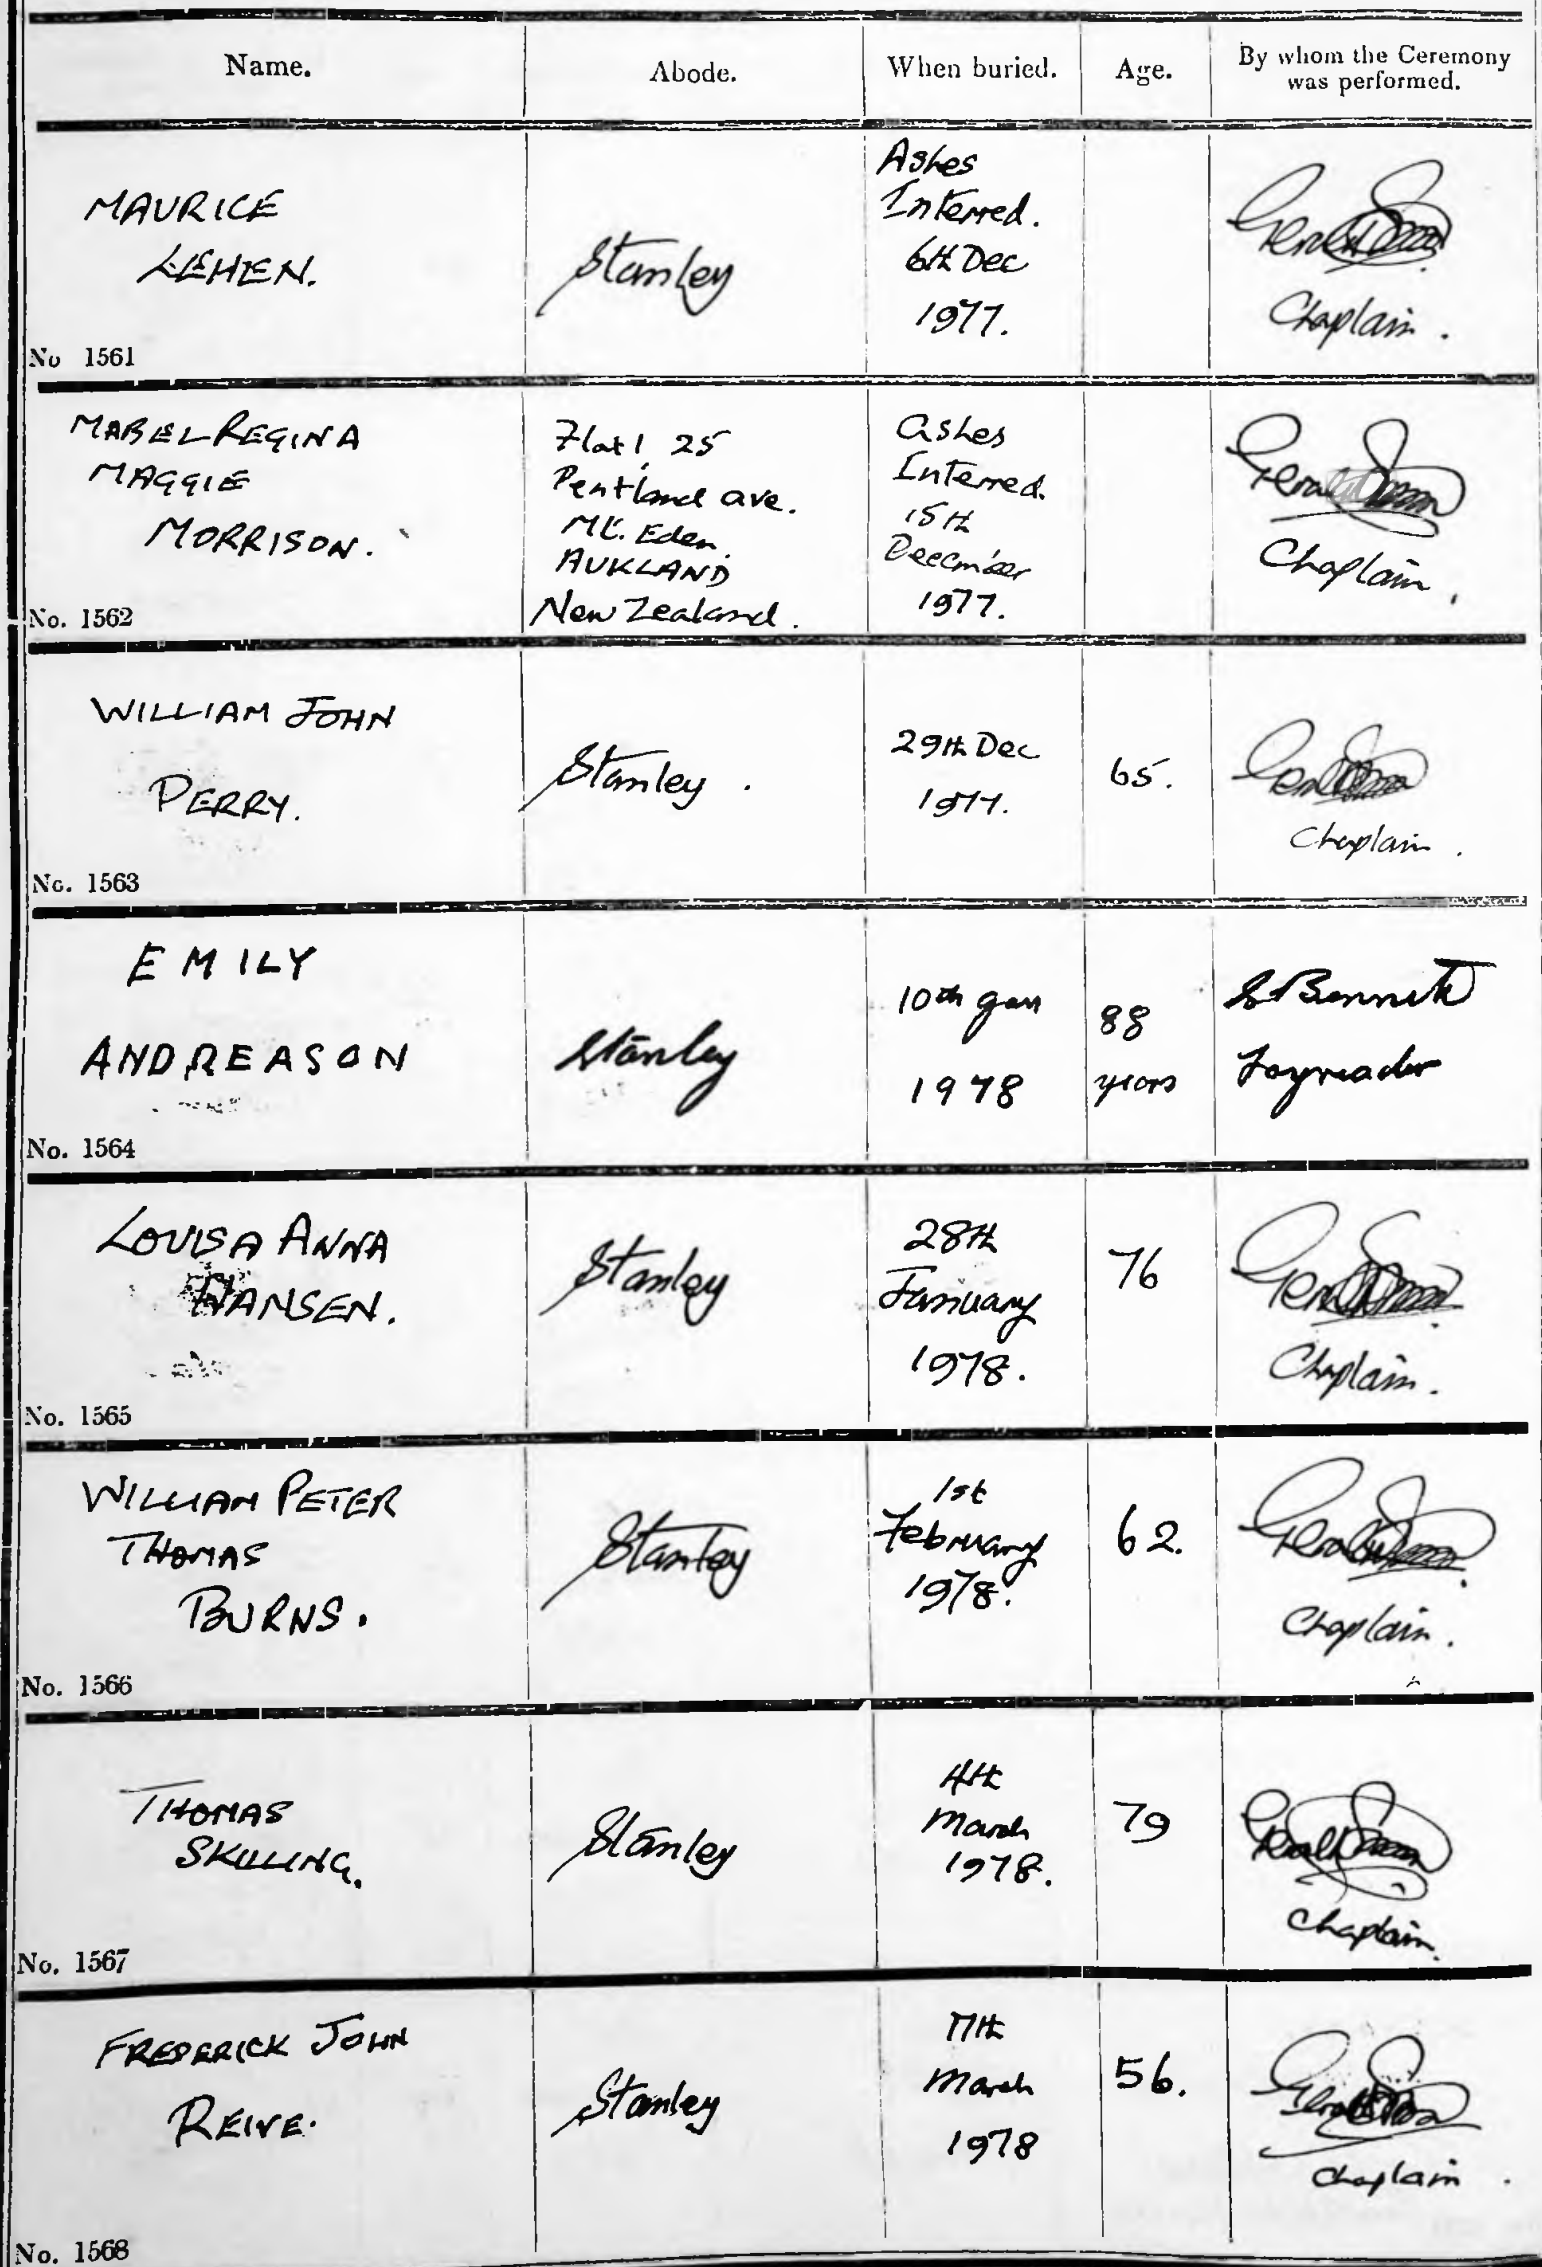 Name.
Abode.
When buried.
Age.
By whom the Ceremony
was performed.
MAURICE
LEHEN.
No 1561
Stanley
Ashes
Interred.
6th Dec
1977.
Chaplain.
MABEL REGINA
MAGGIE
MORRISON.
No. 1562
Flat 1, 25
Pentland ave.
Mt. Eden.
AUKLAND
New Zealand.
Ashes
Interred.
15th
December
1977.
Chaplain.
WILLIAM JOHN
PERRY.
No. 1563
Stanley.
29th Dec
1977.
65.
Chaplain.
EMILY
ANDREASON
No. 1564
Stanley
10th Jan
1978
88
years
Bennett
Layreader
LOUISA ANNA
HANSEN.
No. 1565
Stanley
28th
January
1978.
76
Chaplain.
WILLIAM PETER
THOMAS
BURNS.
No. 1566
Stanley
1st
February
1978.
62.
Chaplain.
THOMAS
SKILLING.
No. 1567
Stanley
4th
March
1978.
79
Chaplain.
FREDERICK JOHN
REIVE.
No. 1568
Stanley
17th
March
1978
56.
Chaplain.